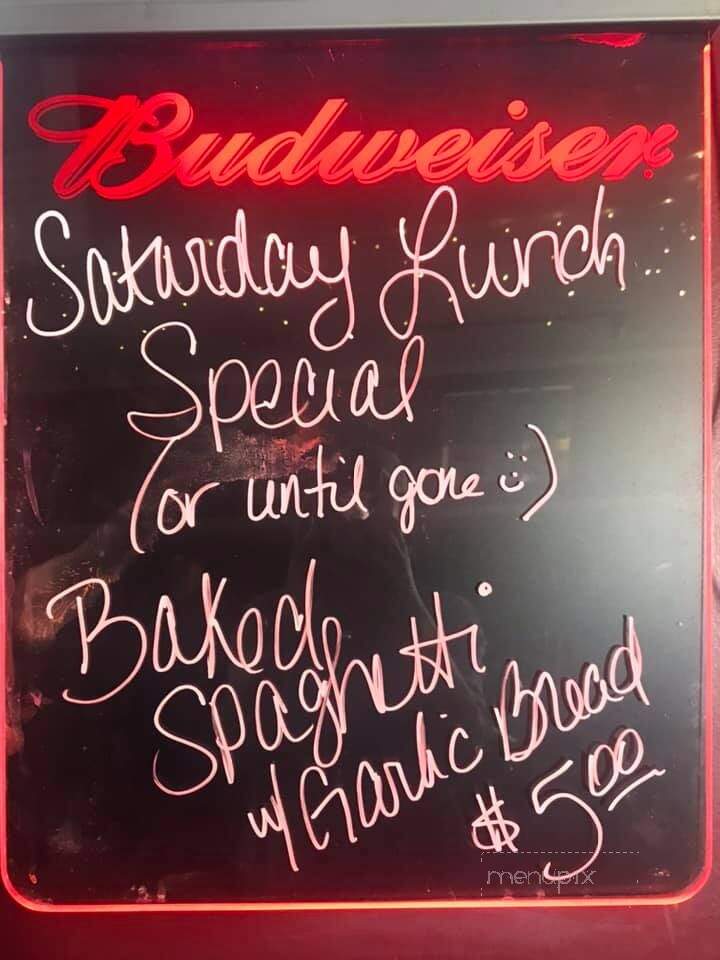 Budweiser
Saturday Lunch
Special
(or until gone :))
Baked
Spaghetti
w/ Garlic Bread
$5.00
menupix